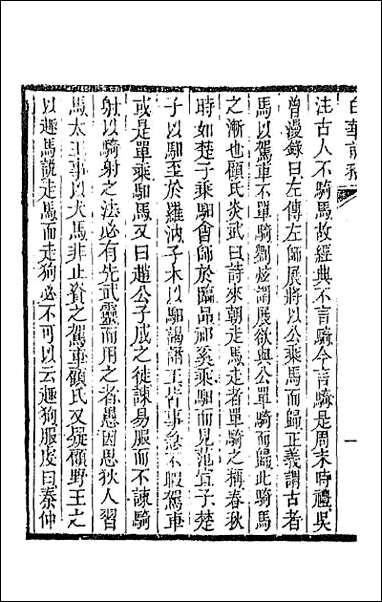 白華前稿
一
注古人不騎馬故經典不言騎今言騎是周末時禮吳
曾漫錄曰左傳左師展將以公乘馬而歸正義謂古者
馬以駕車不單騎劉炫謂展欲與公單騎而歸此騎馬
之漸也顧氏炎武曰詩來朝走馬走者單騎之稱春秋
時如楚子乘馹會師於臨品祁奚乘馹而見范宣子楚
子以馹至於羅汭子木以馹謁諸王皆事急不暇駕車
或是單乘馹馬又曰趙公子成之徒諫易服而不諫騎
射以騎射之法必有先武靈而用之者愚因思狄人習
馬太王事以犬馬非止資之駕車顧氏又疑顧野王之
以趣馬說走馬而走狗必不可以云趣狗服虔曰秦仲